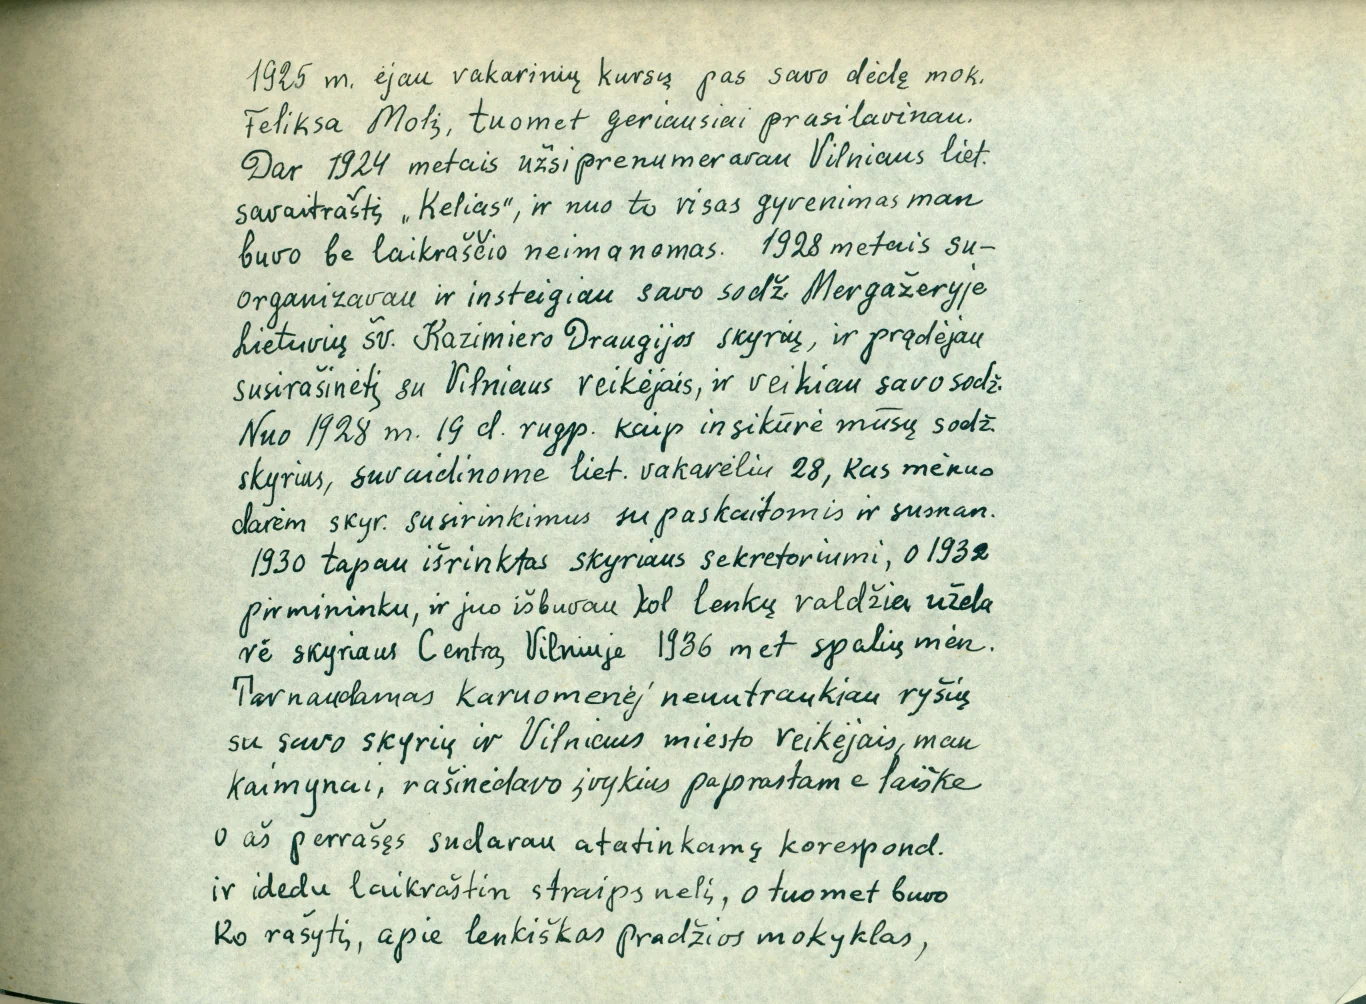 1925 m. ėjau vakarinių kursų pas savo dėdę mok.
Feliksa Molį, tuomet geriausiai prasilavinau.
Dar 1924 metais užsiprenumeravau Vilniaus liet.
savaitraštį „Kelias", ir nuo to visas gyvenimas man
buvo be laikraščio neimanomas. 1928 metais su-
organizavau ir insteigiau savo sodž. Mergažeryje
Lietuvių šv. Kazimiero Draugijos skyrių, ir pradėjau
susirašinėtį su Vilniaus veikėjais, ir veikiau savo sodž.
Nuo 1928 m. 19 d. rugp. kaip insikūrė mūsų sodž.
skyrius, suvaidinome liet. vakarėliu 28, kas mėnuo
darėm skyr. susirinkimus su paskaitomis ir susman.
1930 tapau išrinktas skyriaus sekretoriumi, o 1932
pirmininku, ir juo išbuvau kol lenkų valdžia uždą
rė skyriaus Centrą Vilniuje 1936 met spalių mėn.
Tarnaudamas karuomenėj nenutraukiau ryšių
su savo skyrių ir Vilniaus miesto veikėjais, man
kaimynai, rašinėdavo įvykius paprastame laiške
o aš perrašęs sudarau atatinkamą korespond.
ir idedu laikraštin straipsnelį, o tuomet buvo
ko rašytį, apie lenkiškas pradžios mokyklas,